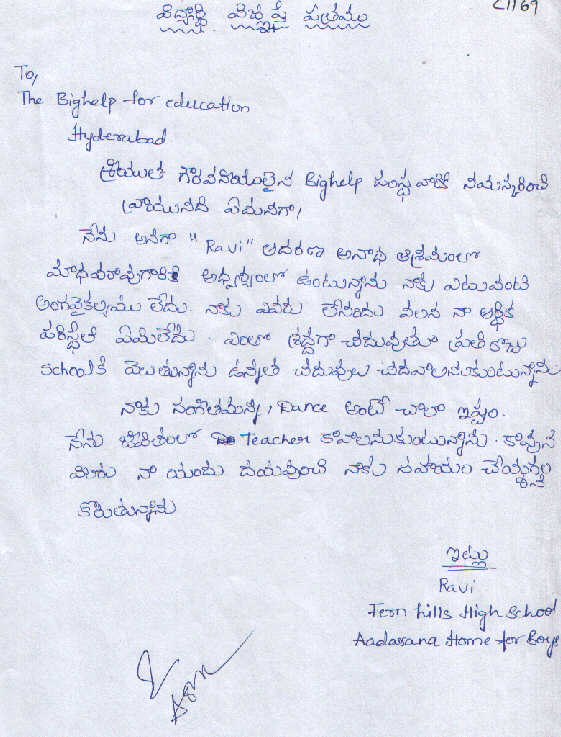 C1169
విద్యార్థి విజ్ఞప్తి పత్రము
To,
The Bighelp for education
Hyderabad
శ్రీయుత గౌరవనీయులైన Bighelp సంస్థ వారికి నమఃస్కరించి
వ్రాయునది ఏమనగా,
నేను అనగా "Ravi" ఆదరణా అనాథ ఆశ్రమంలో
మాధవరావుగారి అధ్వర్యంలో ఉంటున్నాను నాకు ఎటువంటి
అంగవైకల్యము లేదు. నాకు ఎవరు లేనందు వలన నా ఆర్థిక
పరిస్థితి ఏమిలేదు. ఎంతో శ్రద్దగా చదువుతూ ప్రతిరోజు
schoolకి వెలుతున్నాను ఉన్నత చదువులు చదవాలనుకుంటున్నాను
నాకు సంగీతమన్న, Dance అంటే చాలా ఇష్టం.
నేను జీవితంలో Teacher కావాలనుకుంటున్నాను. కావున
మీరు నా యందు దయవుంచి నాకు సహాయం చేయ్యగల్ల
కోరుతున్నాను
ఇట్లు
Ravi
Fern hills High School
Aadarana Home for Boys